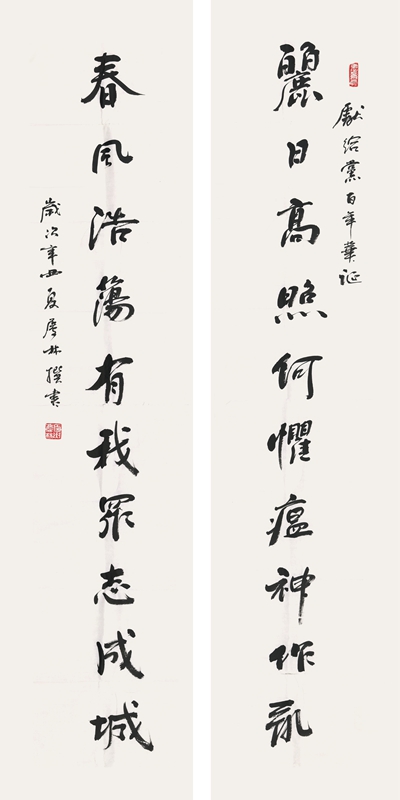 獻給黨百年華誕
麗日高照何懼瘟神作亂
春風浩蕩有我眾志成城
歲次辛丑夏林撰書